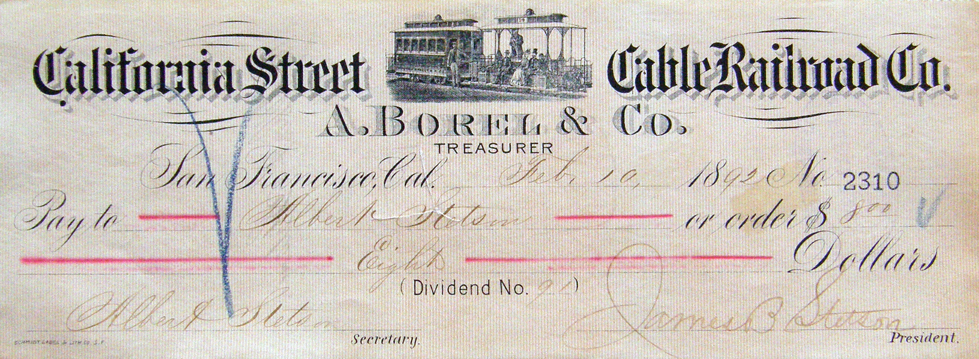 California Street Cable Railroad Co.
A. BOREL & Co.
TREASURER
San Francisco, Cal. Feb. 10, 1892 No 2310
Pay to Albert Stetson or order $ 800
Eight Dollars
(Dividend No. 91)
Albert Stetson James B Stetson
Secretary. President.